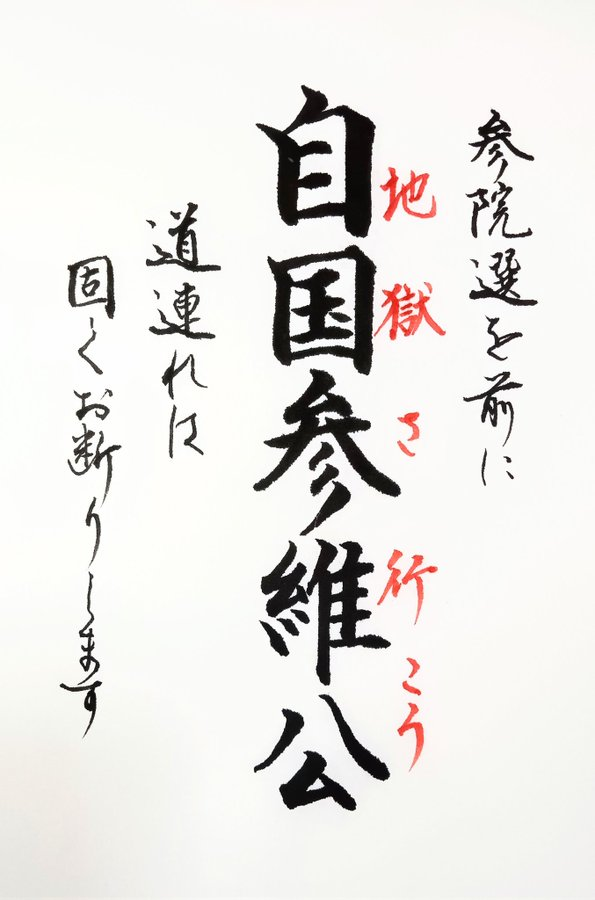 参院選を前に
地獄さ行こう
自国参維公
道連れは
固くお断りします